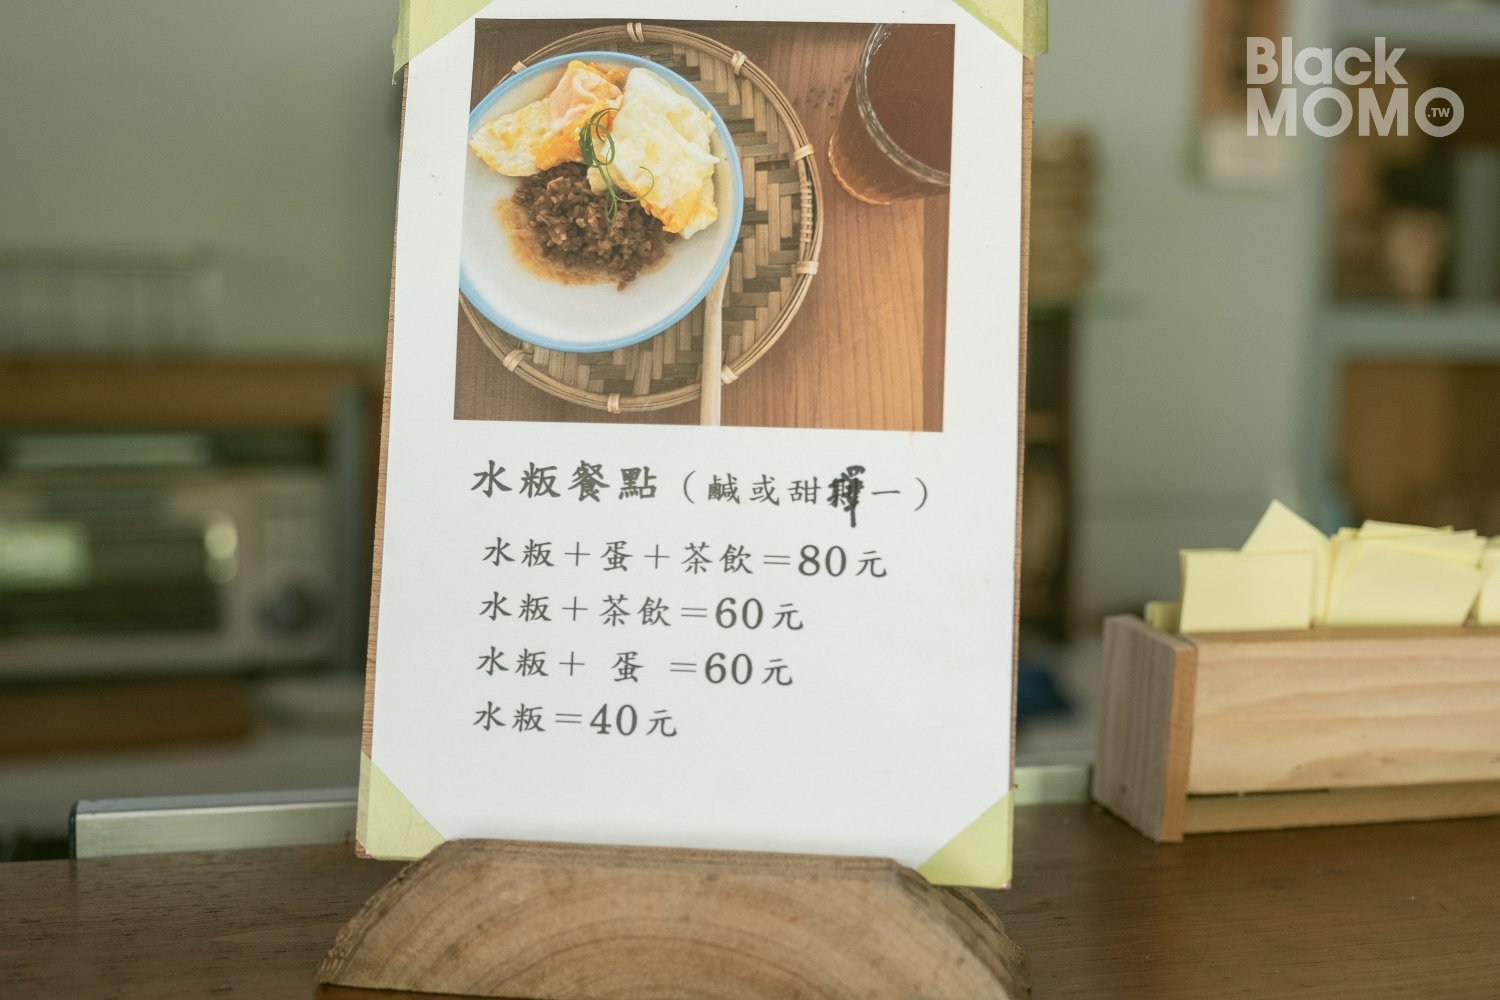 Black
MOMO.TW
水粄餐點（鹹或甜擇一）
水粄＋蛋＋茶飲＝80元
水粄＋茶飲＝60元
水粄＋ 蛋 ＝60元
水粄＝40元